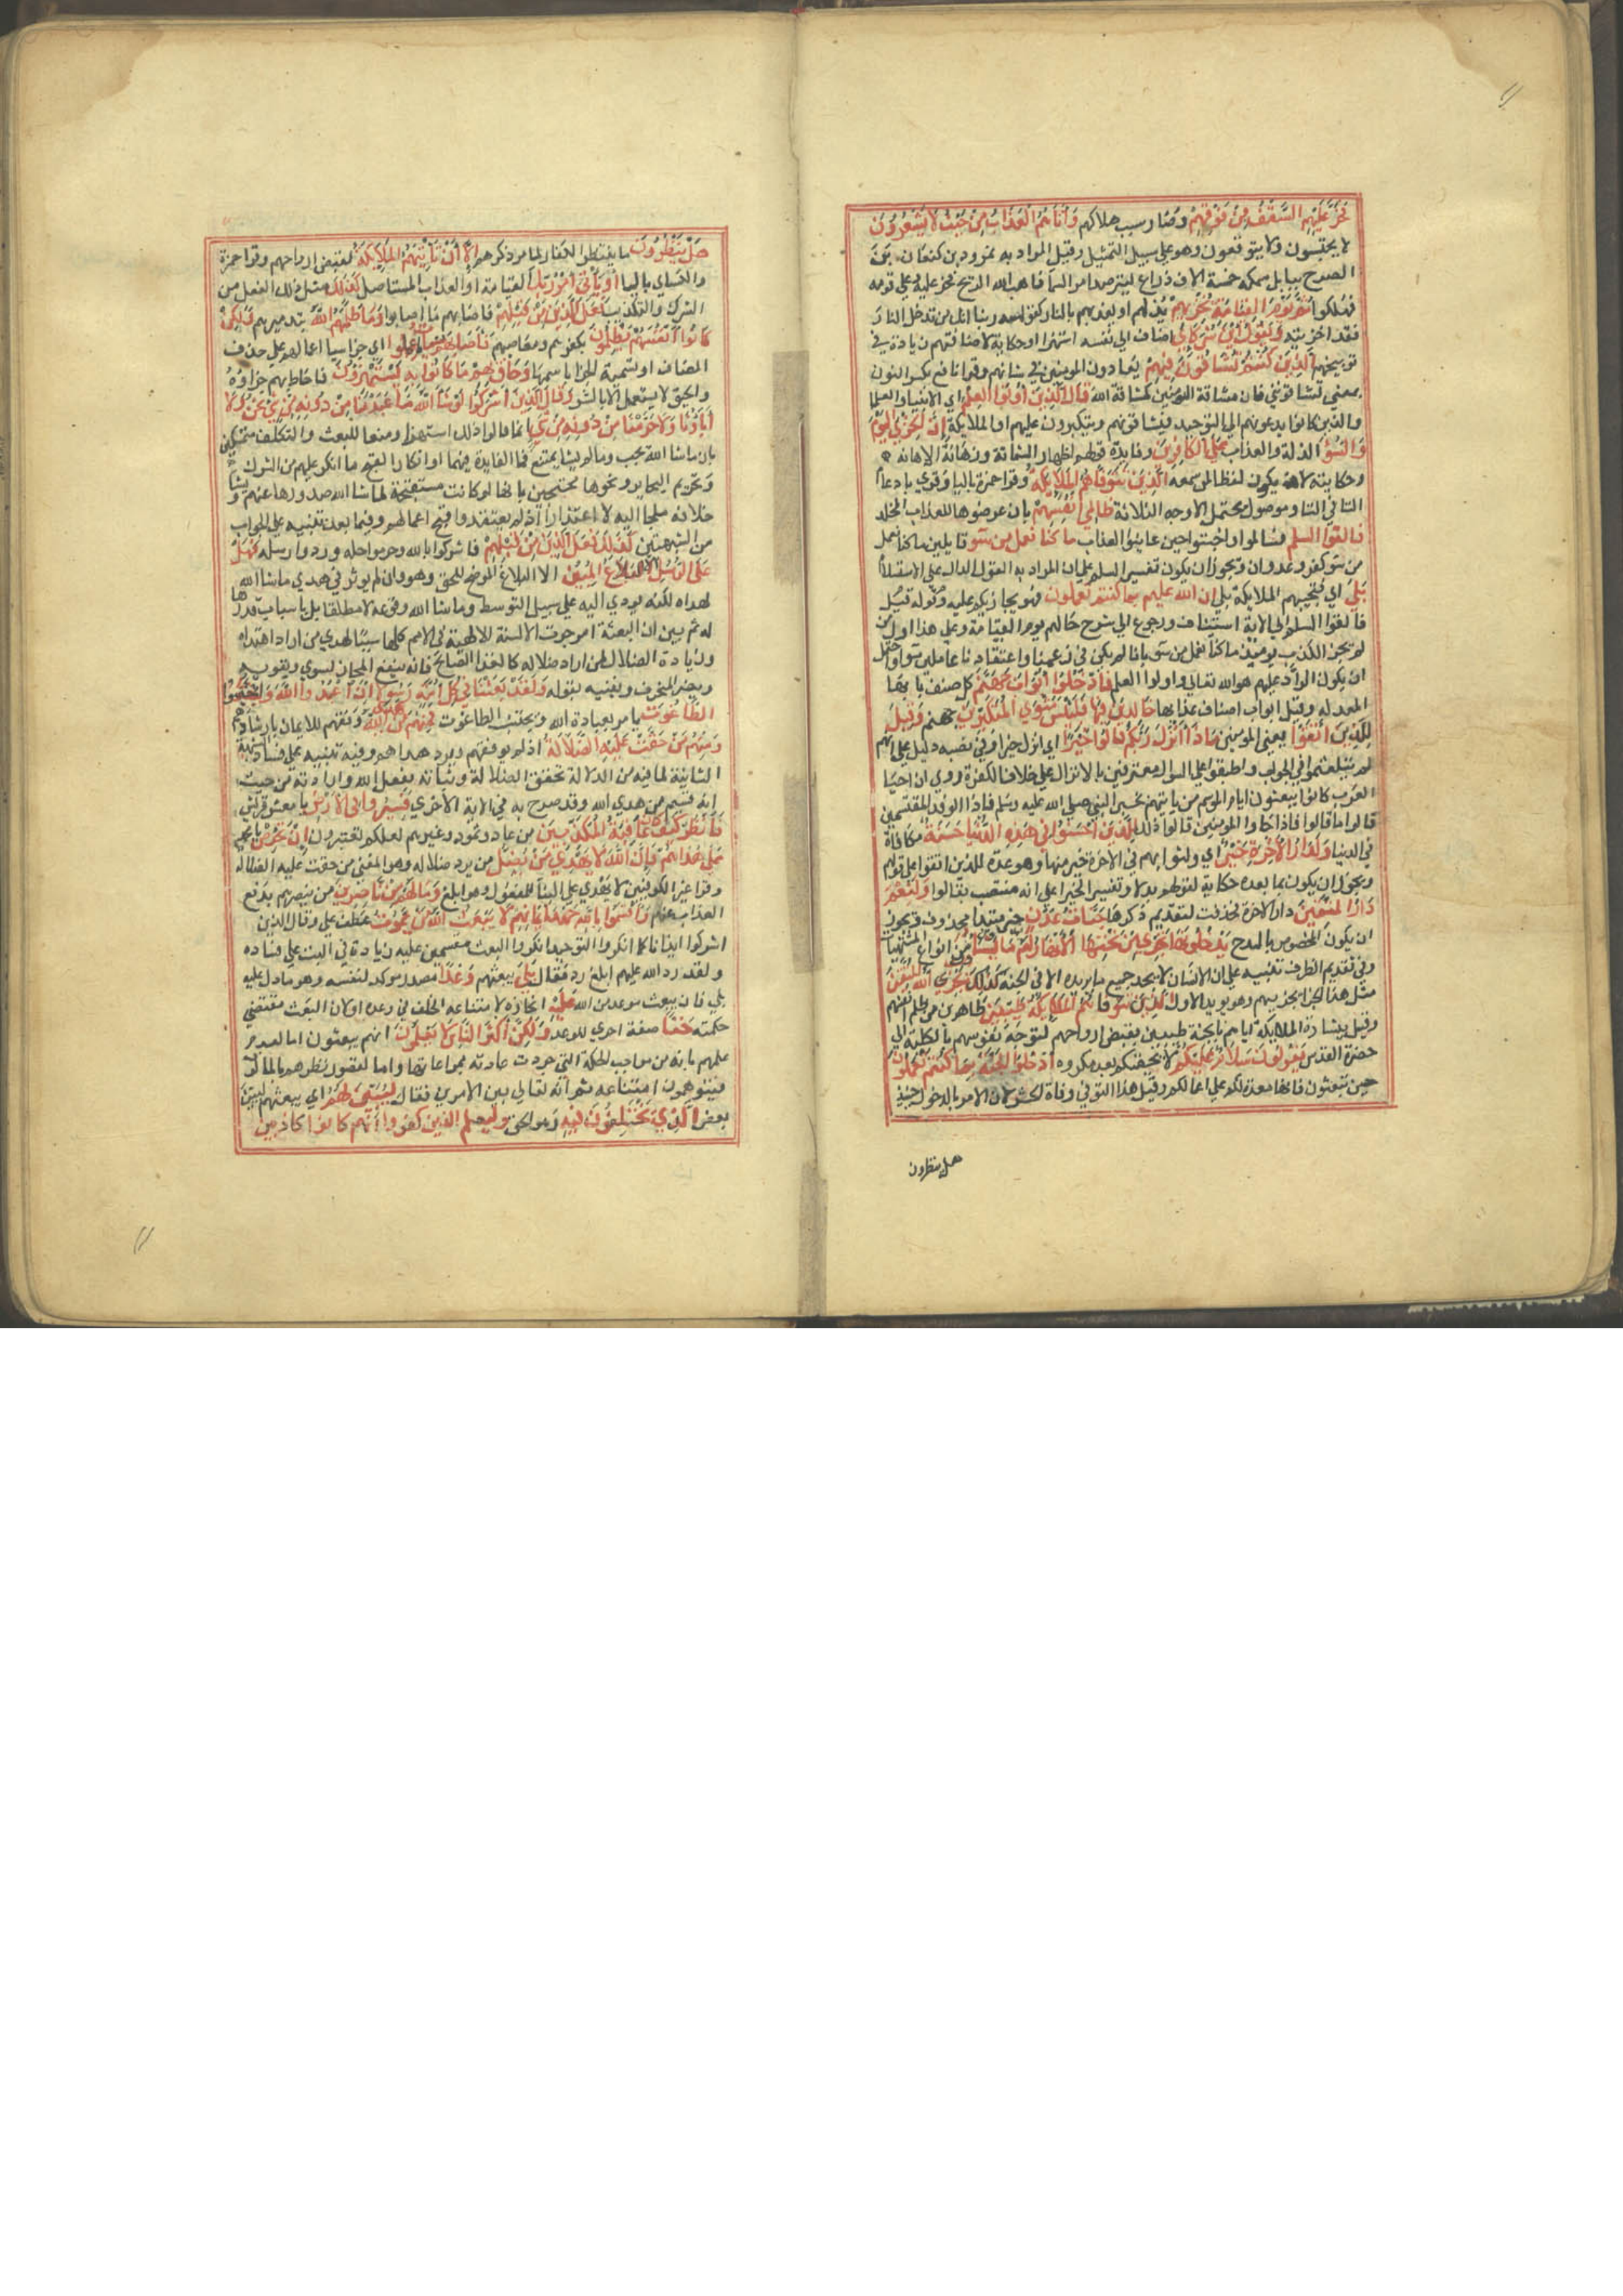 فخر عليهم السقف من فوقهم وصار سبب هلاكهم واتاهم العذاب من حيث لا يشعرون
لا يحتسبون ولا يتوقعون وهو على سبيل التمثيل وقيل المراد به نمرود بن كنعان بنى
الصرح ببابل سمكه خمسة الاف ذراع ليترصد امر السما فاهب الله الريح فخر عليه وعلى قومه
فهلكوا ثم يوم القيامة يخزيهم يذلهم او يعذبهم بالنار كقوله ربنا انك من تدخل النار
فقد اخزيته ويقول اين شركاي اضاف الى نفسه استهزا او حكاية لاضافتهم زيادة في
توبيخهم الذين كنتم تشاقون فيهم تعادون المومنين في شانهم وقرا نافع بكسر النون
بمعنى تشاقونني فان مشاقة المومنين كمشاقة الله قال الذين اوتوا العلم اي الانبيا والعلما
والذين كانوا يدعونهم الى التوحيد فيشاقونهم ويتكبرون عليهم او الملايكة ان الخزي اليوم
والسو الذلة والعذاب على الكافرين وفايدة قولهم اظهار الشماتة وزيادة الاهانه
وحكايته لان يكون لطفا لمن سمعه الذين تتوفاهم الملايكة وقرا حمزة باليا وقري بادغام
التا في التا وموصول يحتمل الاوجه الثلاثة ظالمي انفسهم بان عرضوها للعذاب المخلد
فالقوا السلم فسالموا واخبتوا حين عاينوا العذاب ما كنا نعمل من سو قايلين ما كنا نعمل
من سو كفر وعدوان ويجوز ان يكون تفسير السلم على ان المراد به القول الدال على الاستسلام
بلى اي فتجيبهم الملايكة بلى ان الله عليم بما كنتم تعملون فهو يجازيكم عليه وقوله قيل
فالقوا السلم الى الاية استيناف ورجوع الى شرح حالهم يوم القيامة وعلى هذا اول من
لم يجوز الكذب يومئذ ما كنا نعمل من سو بانا لم نكن في زعمنا واعتقادنا عاملين سوا واحتمل
ان يكون الراد عليهم هو الله تعالى واولوا العلم فادخلوا ابواب جهنم كل صنف بابها
المعد له وقيل ابواب اصناف عذابها خالدين فيها فلبيس مثوى المتكبرين جهنم وقيل
للذين اتقوا يعني المومنين ماذا انزل ربكم قالوا خيرا اي انزل خيرا وفي نصبه دليل على انهم
لم يتلعثموا في الجواب واطبقوا على السوال معترفين بالانزال على خلاف الكفرة روي ان احيا
العرب كانوا يبعثون ايام الموسم من ياتيهم بخبر النبي صلى الله عليه وسلم فاذا الوفد المقتسمين
قالوا ما قالوا فاذا جاوا المومنين قالوا ذلك للذين احسنوا في هذه الدنيا حسنة مكافاة
في الدنيا ولدار الاخرة خير اي ولثوابهم في الاخرة خير منها وهو عدة للذين اتقوا على قولهم
ويجوز ان يكون بما بعده حكاية لقولهم بدلا وتفسير الخيرا على انه منتصب بقالوا ولنعم
دار المتقين دار الاخرة فحذفت لتقديم ذكرها جنات عدن خبر مبتدا محذوف ويجوز
ان يكون المخصوص بالمدح يدخلونها تجري من تحتها الانهار لهم فيها ما يشاون من انواع المشتهيات
وفي تقديم الظرف تنبيه على ان الانسان لا يجد جميع ما يريده الا في الجنة كذلك يجزي الله المتقين
مثل هذا الجزا يجزيهم وهو يويد الاول الذين تتوفاهم الملايكة طيبين طاهرين من ظلم انفسهم
وقيل ببشارة الملايكة اياهم بالجنة طيبين بقبض ارواحهم لتوجه نفوسهم بالكلية الى
حضرة القدس يقولون سلام عليكم لا يحيقكم بعد مكروه ادخلوا الجنة بما كنتم تعملون
حين تبعثون فانها معدة لكم على اعمالكم وقيل هذا التوفي وفاة الحشر لان الامر بالدخول حينيذ
هل ينظرون
هل ينظرون ما ينتظر الكفار المار ذكرهم الا ان تاتيهم الملايكة لقبض ارواحهم وقرا حمزة
والكساي باليا او ياتي امر ربك القيامة او العذاب المستاصل كذلك مثل ذلك الفعل من
الشرك والتكذيب فعل الذين من قبلهم فاصابهم ما اصابوا وما ظلمهم الله بتدميرهم ولكن
كانوا انفسهم يظلمون بكفرهم ومعاصيهم فاصابهم سيات ما عملوا اي جزا سيات اعمالهم على حذف
المضاف او تسمية الجزا باسمها وحاق بهم ما كانوا به يستهزون فاحاط بهم جزاوه
والحيق لا يستعمل الا بالشر وقال الذين اشركوا لو شا الله ما عبدنا من دونه من شي نحن ولا
اباونا ولا حرمنا من دونه من شي انما قالوا ذلك استهزا ومنعا للبعث والتكليف متمسكين
بان ما شا الله يجب وما لم يشا يمتنع فما الفايدة فيهما او انكارا لقبح ما انكر عليهم من الشرك
وتحريم البحاير ونحوها محتجين بانها لو كانت مستقبحة لما شا الله صدورها عنهم ولشا
خلافه ملجا اليه لا اعتذارا اذ لم يعتقدوا قبح اعمالهم وفيما بعد تنبيه على الجواب
من الشبهتين كذلك فعل الذين من قبلهم فاشركوا بالله وحرموا حله وردوا رسله فهل
على الرسل الا البلاغ المبين الا البلاغ الموضح للحق وهو وان لم يوثر في هدي ما شا الله
هداه لكنه يودي اليه على سبيل التوسط وما شا الله وقوعه لا مطلقا بل باسباب قدرها
له ثم بين ان البعثة امر جرت الالسنة الالهية في الامم كلها سببا لهدي من اراد اهتداه
وزيادة الضلال لمن اراد ضلاله كالغذا الصالح فانه ينفع المزاج السوي ويقويه
ويضر المنحرف ويفنيه بقوله ولقد بعثنا في كل امة رسولا ان اعبدوا الله واجتنبوا
الطاغوت يامر بعبادة الله ويجتنب الطاغوت فمنهم من هدى الله وفقهم للايمان بارشادهم
ومنهم من حقت عليه الضلالة اذ لم يوفقهم ولم يرد هداهم وفيه تنبيه على فساد الشبهة
الثانية لما فيه من الدلالة تحقق الضلالة وثباته بفعل الله وارادته من حيث
انه قسيم من هدي الله وقد صرح به في الاية الاخرى فسيروا في الارض يا معشر قريش
فانظروا كيف كان عاقبة المكذبين من عاد وثمود وغيرهم لعلكم تعتبرون ان تحرص يا محمد
على هداهم فان الله لا يهدي من يضل من يرد ضلاله وهو المعنى من حقت عليه الضلالة
وقرا غير الكوفيين لا يهدى على البنا للمفعول وهو ابلغ وما لهم من ناصرين من ينصرهم بدفع
العذاب عنهم واقسموا بالله جهد ايمانهم لا يبعث الله من يموت عطف على وقال الذين
اشركوا ايذانا كما انكروا التوحيد انكروا البعث مقسمين عليه زيادة في البت على فساده
ولقد رد الله عليهم ابلغ رد فقال بلى يبعثهم وعدا مصدر موكد لنفسه وهو ما دل عليه
بلى فان يبعث موعد من الله عليه انجازه لامتناعه الخلف في وعده او لان البعث مقتضى
حكمته حقا صفة اخرى للوعد ولكن اكثر الناس لا يعلمون انهم يبعثون اما لعدم
علمهم بانه من مواجب الحكمة التي جرت عادته بمراعاتها واما لقصور نظرهم بالمالوف
فيتوهمون امتناعه ثم انه تعالى بين الامرين فقال ليبين لهم اي يبعثهم ليبين
بعض الذي يختلفون فيه وهو الحق وليعلم الذين كفروا انهم كانوا كاذبين